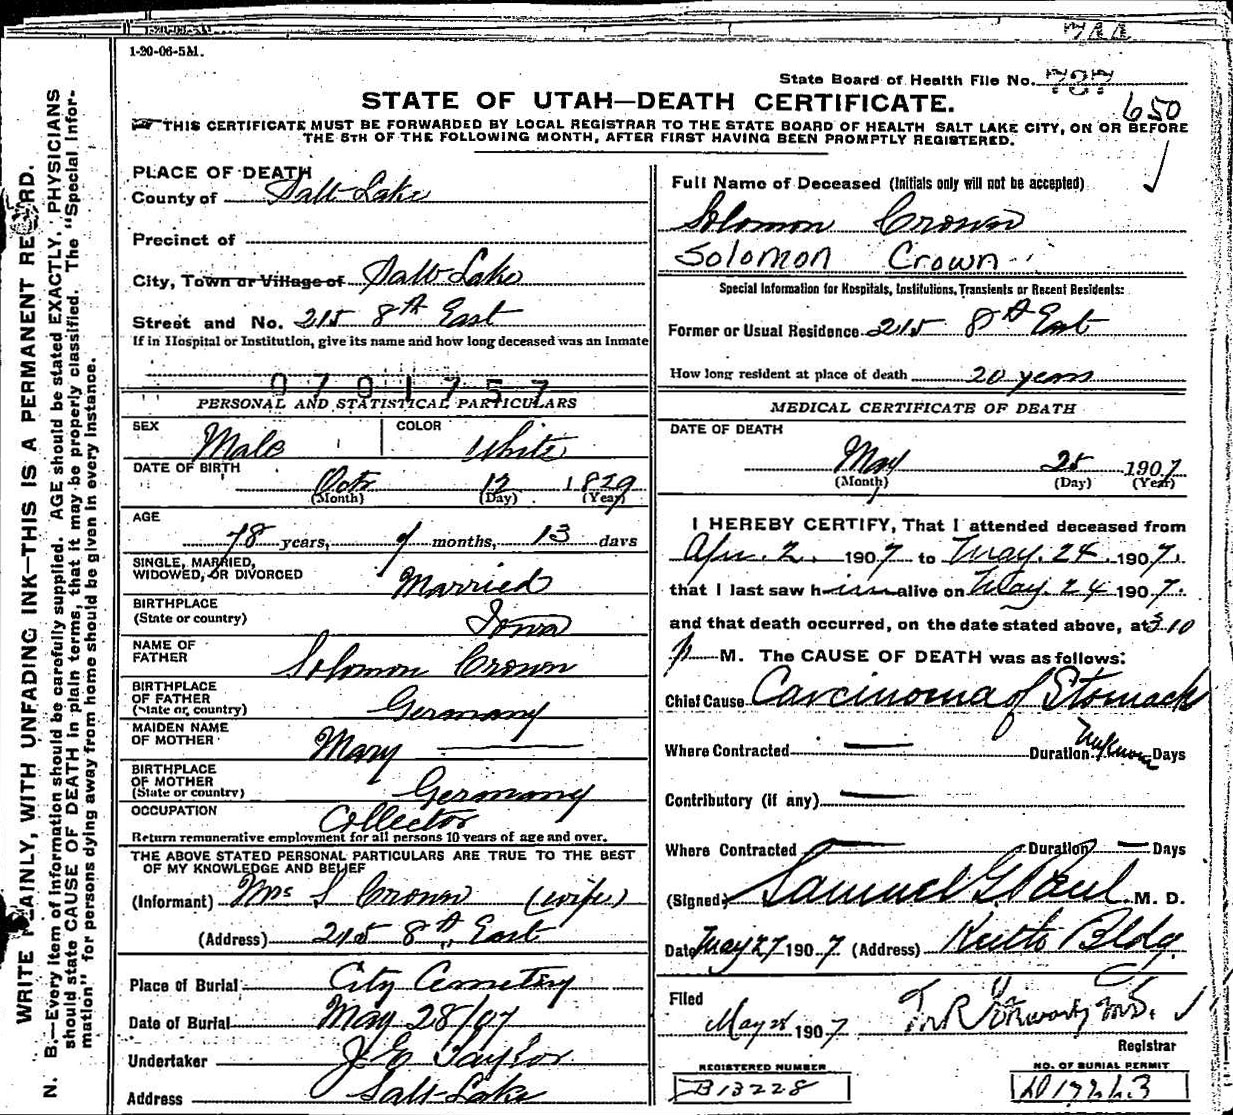 1-20-06-5M.
State Board of Health File No. 787
650
STATE OF UTAH—DEATH CERTIFICATE.
THIS CERTIFICATE MUST BE FORWARDED BY LOCAL REGISTRAR TO THE STATE BOARD OF HEALTH SALT LAKE CITY, ON OR BEFORE
THE 5TH OF THE FOLLOWING MONTH, AFTER FIRST HAVING BEEN PROMPTLY REGISTERED.
WRITE PLAINLY, WITH UNFADING INK—THIS IS A PERMANENT RECORD.
N. B.—Every item of information should be carefully supplied. AGE should be stated EXACTLY. PHYSICIANS
should state CAUSE OF DEATH in plain terms, that it may be properly classified. The "Special Infor-
mation" for persons dying away from home should be given in every instance.
PLACE OF DEATH
County of Salt Lake
Precinct of
City, Town or Village of Salt Lake
Street and No. 215 8th East
If in Hospital or Institution, give its name and how long deceased was an Inmate
0701757
PERSONAL AND STATISTICAL PARTICULARS
SEX Male COLOR White
DATE OF BIRTH
Oct 12 1829
(Month) (Day) (Year)
AGE
78 years, 7 months, 13 days
SINGLE, MARRIED,
WIDOWED, OR DIVORCED Married
BIRTHPLACE
(State or country) Iowa
NAME OF
FATHER Solomon Crown
BIRTHPLACE
OF FATHER
(State or country) Germany
MAIDEN NAME
OF MOTHER Mary
BIRTHPLACE
OF MOTHER
(State or country) Germany
OCCUPATION Collector
Return remunerative employment for all persons 10 years of age and over.
THE ABOVE STATED PERSONAL PARTICULARS ARE TRUE TO THE BEST
OF MY KNOWLEDGE AND BELIEF
(Informant) Mrs S Crown (wife)
(Address) 215 8th East
Place of Burial City Cemetery
Date of Burial May 28/07
Undertaker J E Taylor
Address Salt Lake
Full Name of Deceased (Initials only will not be accepted)
Solomon Crown
Solomon Crown
Special Information for Hospitals, Institutions, Transients or Recent Residents:
Former or Usual Residence 215 8th East
How long resident at place of death 20 years
MEDICAL CERTIFICATE OF DEATH
DATE OF DEATH
May 25 1907
(Month) (Day) (Year)
I HEREBY CERTIFY, That I attended deceased from
Apr. 2. 1907 to May. 24. 1907.
that I last saw him alive on May. 24 1907.
and that death occurred, on the date stated above, at 3.10
p M. The CAUSE OF DEATH was as follows:
Chief Cause Carcinoma of Stomach
Where Contracted Duration Unknown Days
Contributory (if any)
Where Contracted Duration Days
(Signed) Samuel G. Paul M. D.
Date May 27 1907 (Address) Keith Bldg
Filed
May 28 1907
Registrar
REGISTERED NUMBER
B13228
NO. OF BURIAL PERMIT